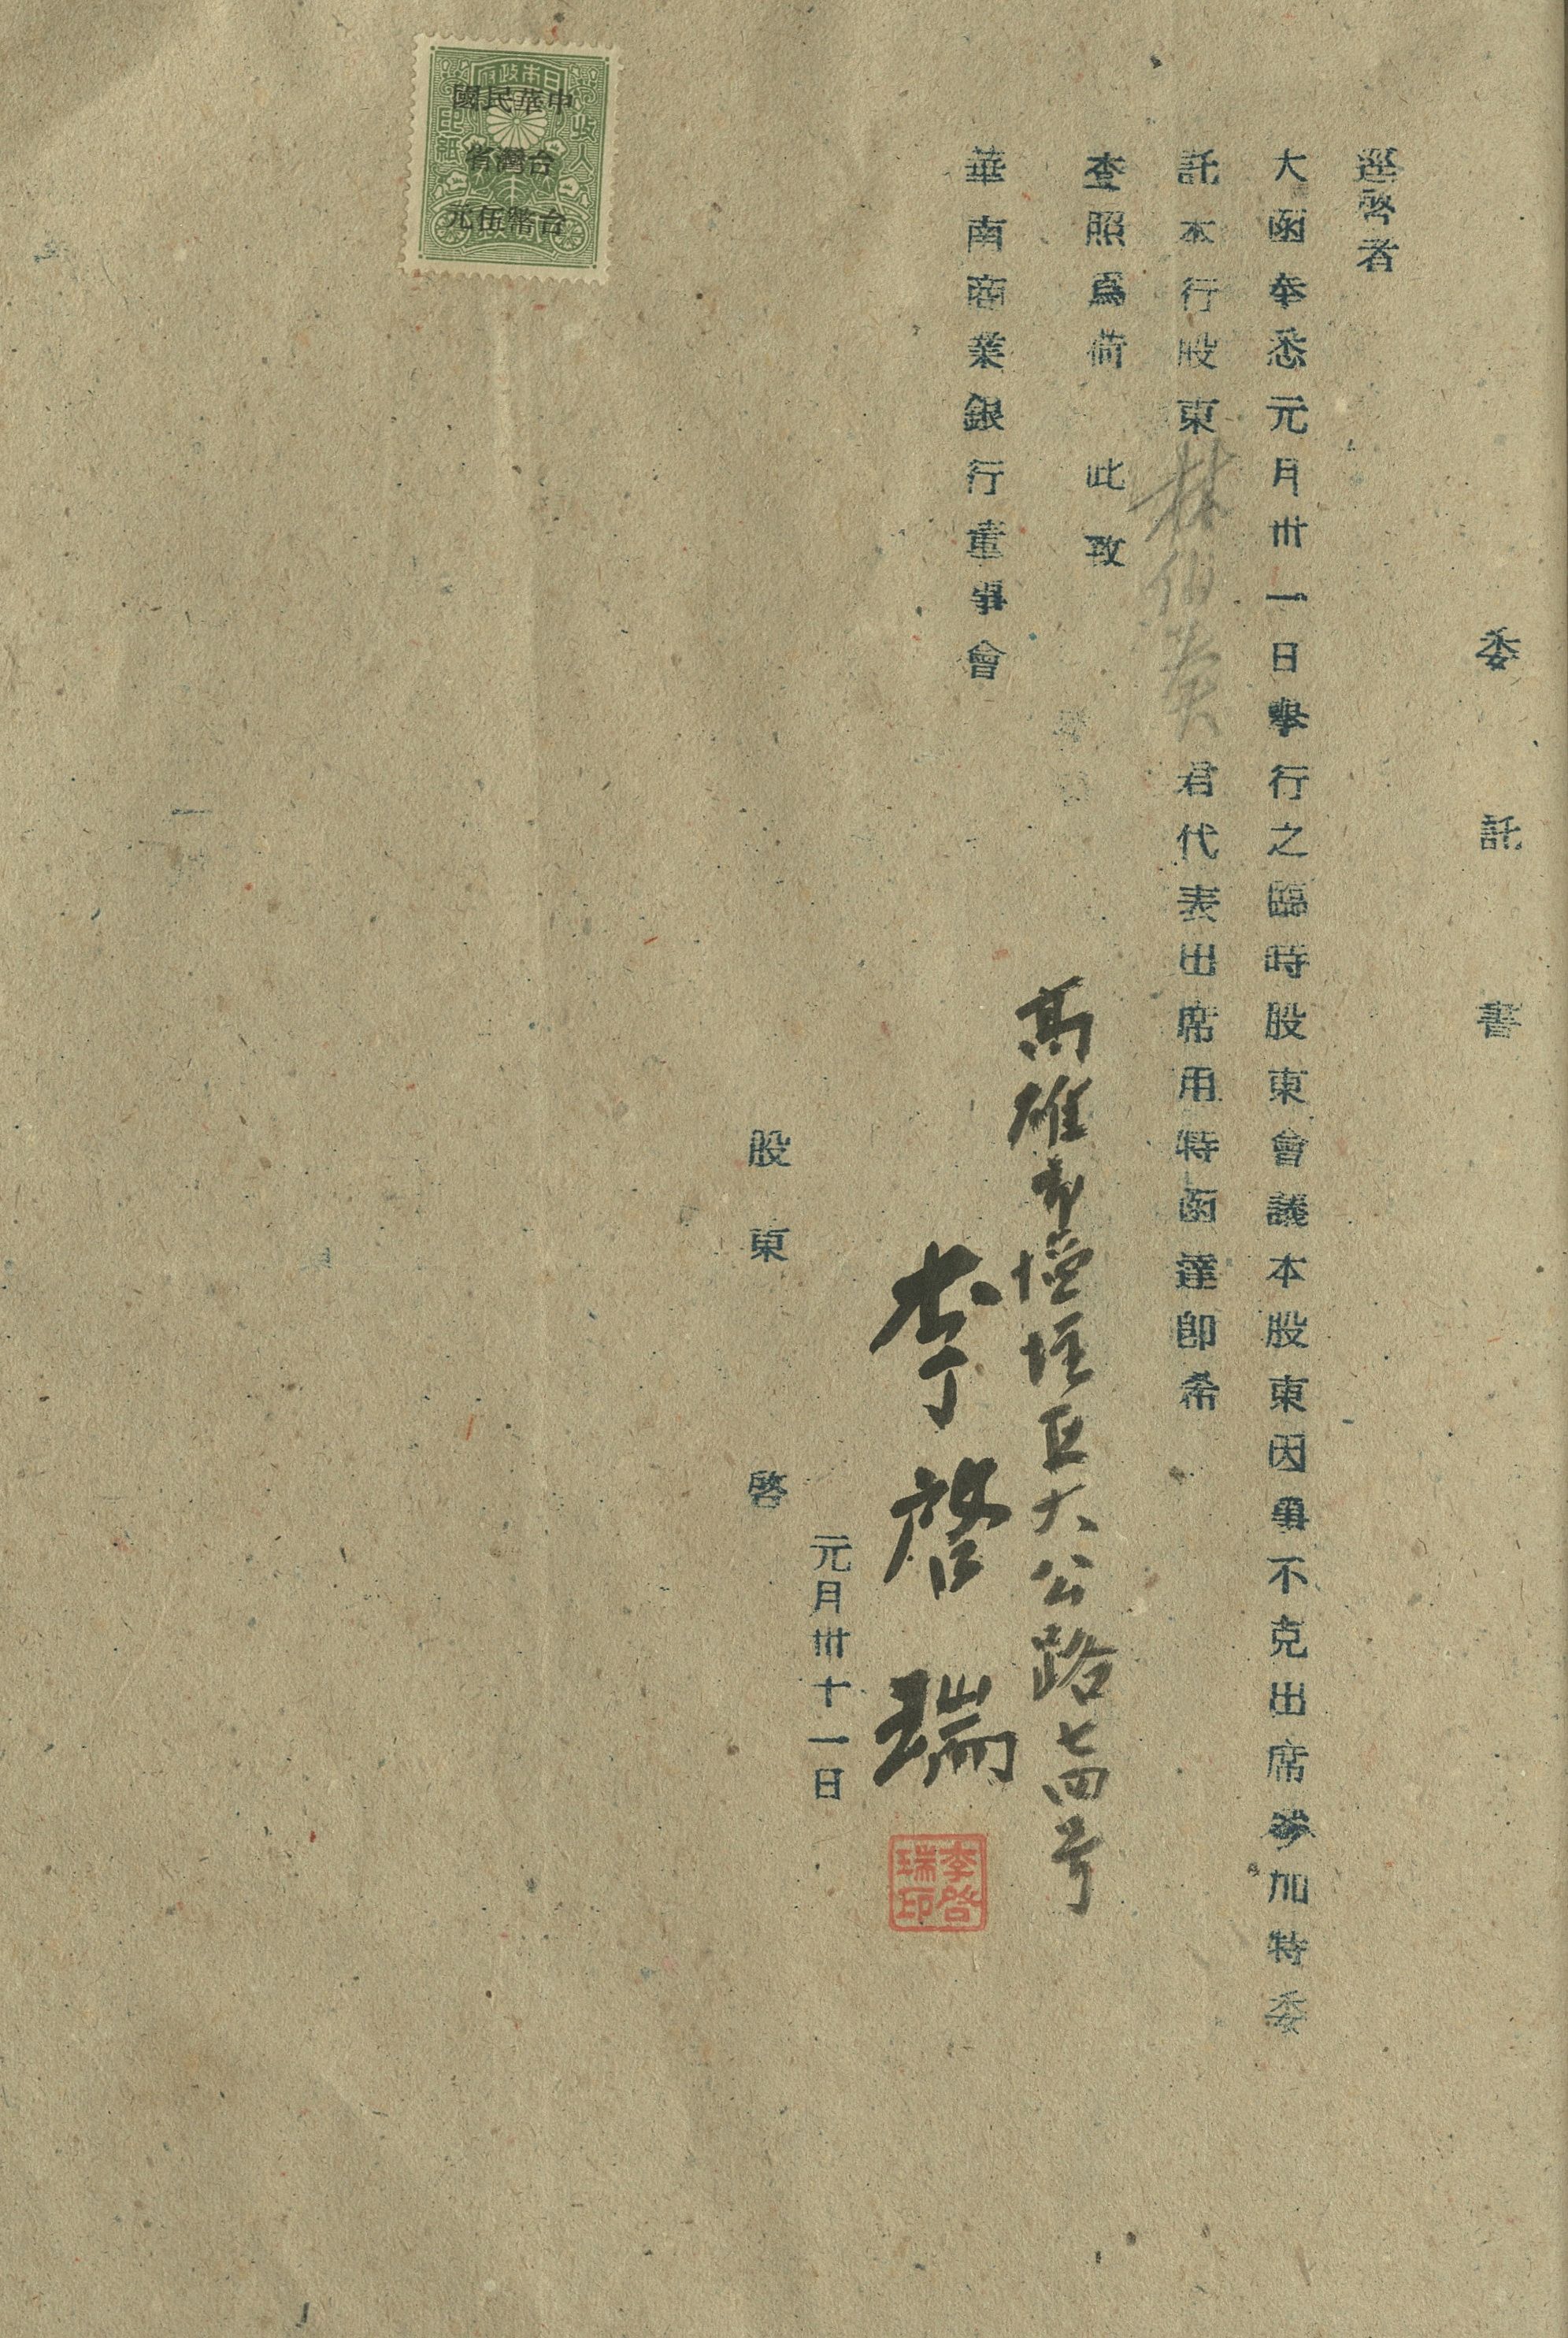 委託書
逕啓者
大函奉悉元月卅一日舉行之臨時股東會議本股東因事不克出席參加特委
託本行股東林伯奏君代表出席用特函達卽希
查照爲荷 此致
華南商業銀行董事會
高雄市塩埕区大公路七四号
李啓瑞
李啓瑞印
元月卅十一日
股東 啓
日本政府
收入印紙
中華民國
台灣省
台幣伍元